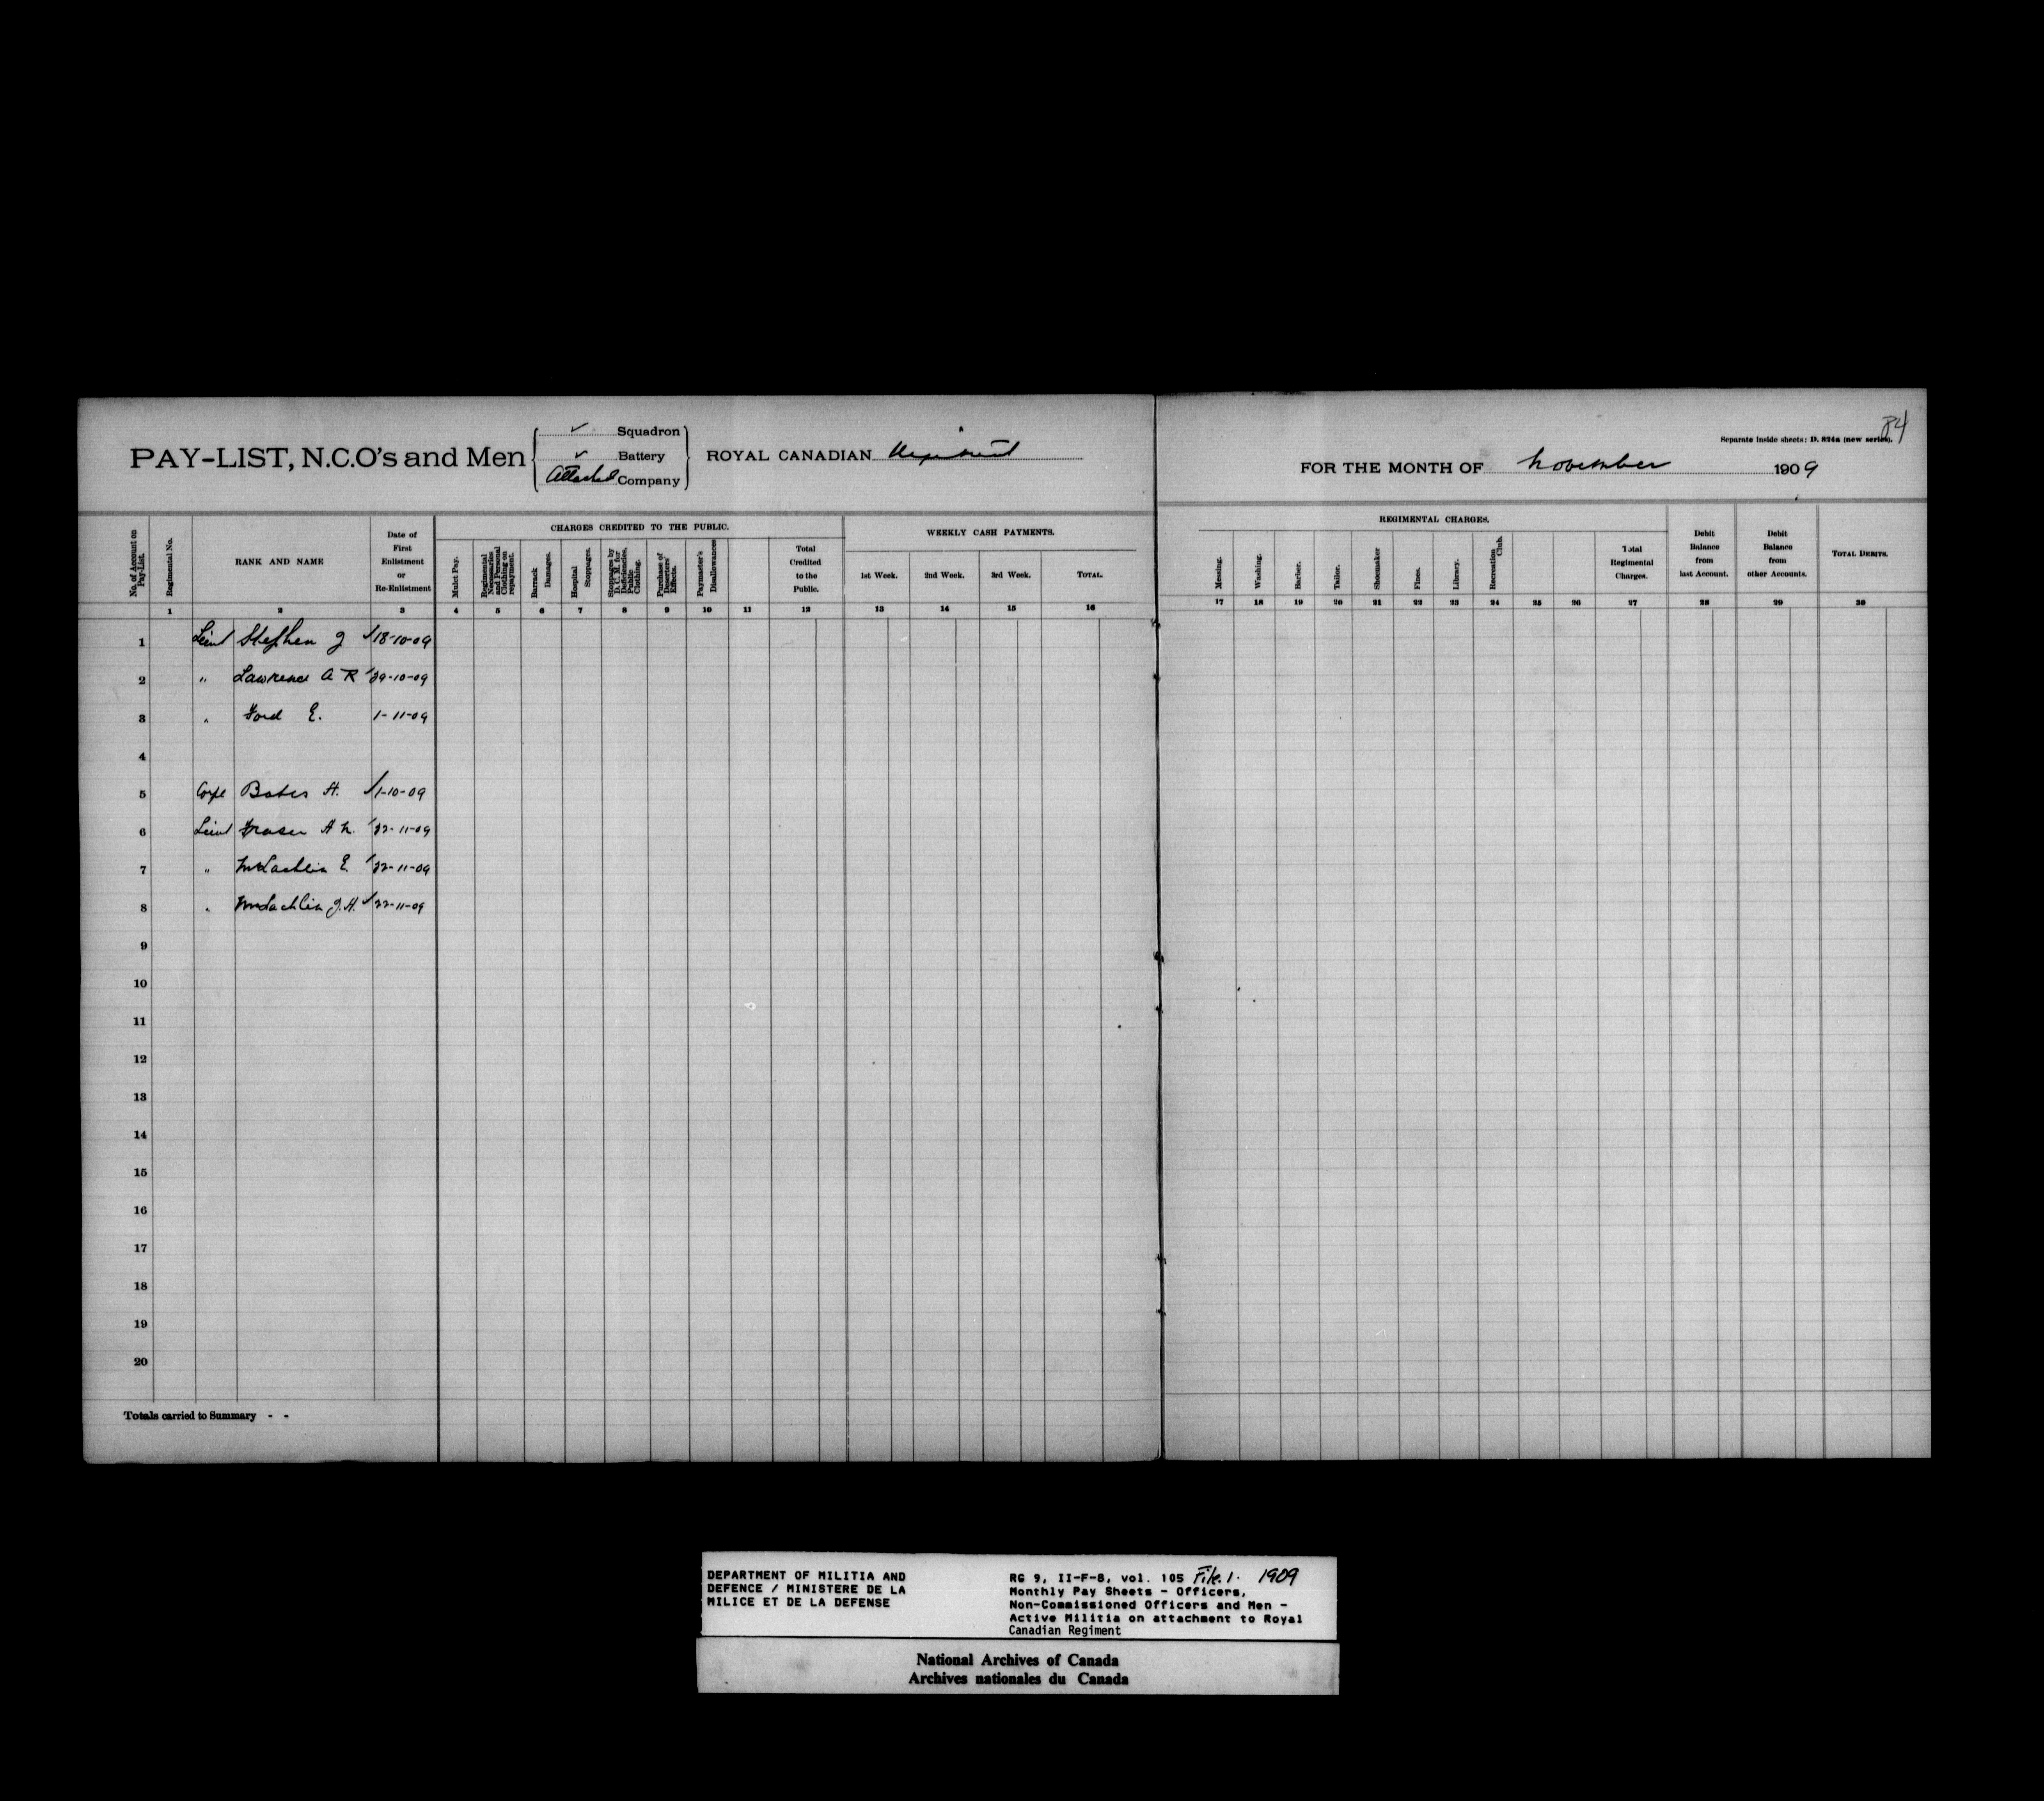 84
Separate inside sheets: D. 824a (new series).
PAY-LIST, N.C.O's and Men
✓ Squadron
✓ Battery
Attached Company
ROYAL CANADIAN Regiment
FOR THE MONTH OF November 1909
No. of Account on Pay-List.
Regimental No.
RANK AND NAME
Date of First Enlistment or Re-Enlistment
CHARGES CREDITED TO THE PUBLIC.
Mulct Pay.
Regimental Necessaries and Personal Clothing on repayment.
Barrack Damages.
Hospital Stoppages.
Stoppages by D. C. M. for Deficiencies, Public Clothing.
Purchase of Deserters' Effects.
Paymaster's Disallowances
Total Credited to the Public.
WEEKLY CASH PAYMENTS.
1st Week. 2nd Week. 3rd Week. TOTAL.
REGIMENTAL CHARGES.
Messing.
Washing.
Barber.
Tailor.
Shoemaker
Fines.
Library.
Recreation Club.
Total Regimental Charges.
Debit Balance from last Account.
Debit Balance from other Accounts.
TOTAL DEBITS.
1 2 3 4 5 6 7 8 9 10 11 12 13 14 15 16 17 18 19 20 21 22 23 24 25 26 27 28 29 30
1 Lieut Stephen J ✓ 18-10-09
2 " Lawrence A R ✓ 29-10-09
3 " Ford E. 1-11-09
4
5 Corpl Bates H. ✓ 1-10-09
6 Lieut Fraser A N. ✓ 22-11-09
7 " McLachlin E ✓ 22-11-09
8 " McLachlin J.H. ✓ 22-11-09
9
10
11
12
13
14
15
16
17
18
19
20
Totals carried to Summary - -
DEPARTMENT OF MILITIA AND
DEFENCE / MINISTERE DE LA
MILICE ET DE LA DEFENSE
RG 9, II-F-8, vol. 105 File. 1. 1909
Monthly Pay Sheets - Officers,
Non-Commissioned Officers and Men -
Active Militia on attachment to Royal
Canadian Regiment
National Archives of Canada
Archives nationales du Canada